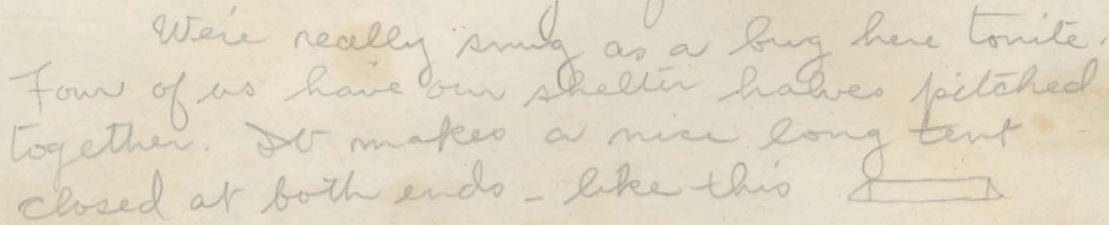 We're really snug as a bug here tonite.
Four of us have our shelter halves pitched
together. It makes a nice long tent
closed at both ends - like this